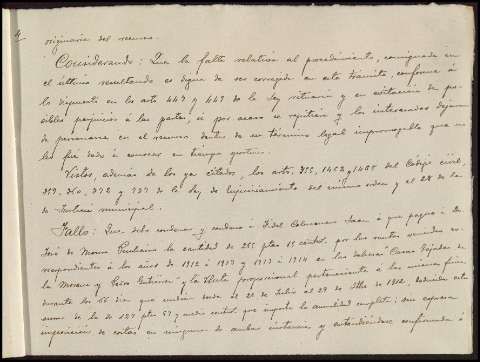 4
originaria del recurso.
Considerando: Que la falta relativa al procedimiento, consignada en
el último resultando es digna de ser corregida en este trámite, conforme á
lo dispuesto en los arts 442 y 443 de la Ley rituaria y en evitación de po-
sibles perjuicios á las partes, si por acaso se repitiera y los interesados dejaran
de personarse en el recurso dentro de su término legal improrrogable que no
les fué dado á conocer en tiempo oportuno.
Vistos, además de los ya citados, los arts. 1555, 1452 y 1465 del Código civil,
359, 360, 372 y 737 de la Ley de Enjuiciamiento del mismo orden y el 28 de la
de Justicia municipal.
Fallo: Que debo condenar y condeno á Fidel Colmenar á que pague á D.
José de Moreno la cantidad de 255 ptas 15 cénts. por las rentas vencidas co-
rrespondientes á los años de 1912 á 1913 y 1913 á 1914 en las dehesas "Casas Bajadas de
la Morena y Casas Gutierrez" y la Renta proporcional perteneciente á las mismas fincas
durante los 66 días que median desde el 22 de Julio al 29 de Sbre de 1912, deducida esta
suma de la de 127 ptas 57 y medio cénts. que importa la anualidad completa; sin expresa
imposición de costas en ninguna de ambas instancias, y entendiéndose confirmada ó